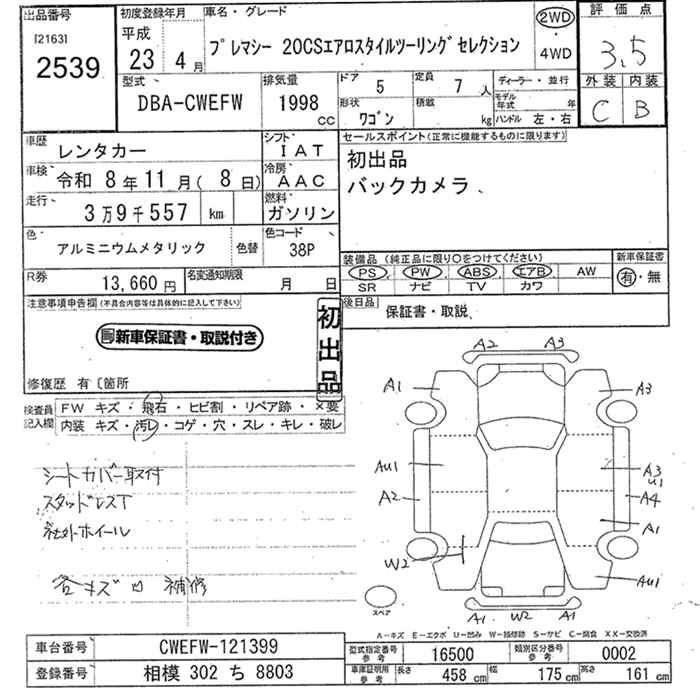 出品番号
[2163]
2539
初度登録年月
平成
23年4月
車名・グレード
プレマシー 20CSエアロスタイルツーリングセレクション
2WD
・
4WD
評価点
3.5
外装 内装
C B
型式
DBA-CWEFW
排気量
1998
cc
ドア 5
定員 7人
形状 ワゴン
積載 kg
ディーラー・並行
モデル年式 年
ハンドル 左・右
車歴 レンタカー
シフト IAT
車検 令和 8年11月(8日)
冷房 AAC
走行 3万9千557 km
燃料 ガソリン
色 アルミニウムメタリック
色替
色コード 38P
R券 13,660円
名変通知期限 月 日
セールスポイント(正常に機能するものに限ります)
初出品
バックカメラ、
装備品(純正品に限り○をつけてください)
PS PW ABS エアB AW
SR ナビ TV カワ
新車保証書
有・無
後日品 保証書・取説
注意事項申告欄(不具合内容等は具体的に記入して下さい)
新車保証書・取説付き
初出品
修復歴 有〔箇所
検査員記入欄
FW キズ・飛石・ヒビ割・リペア跡・×要
内装 キズ・汚レ・コゲ・穴・スレ・キレ・破レ
シートカバー取付
スタッドレスT
社外ホイール
各キズ凹 補修
A2 A3
A1 A3
AU1 A3
U1
A2 A4
A1
W2
AU1
A1 W2 A1
スペア
A-キズ E-エクボ U-凹み W-補修跡 S-サビ C-腐食 XX-交換済
車台番号 CWEFW-121399
登録番号 相模 302 ち 8803
型式指定番号 参考 16500
類別区分番号 参考 0002
車庫証明用 参考 長さ 458 cm 幅 175 cm 高さ 161 cm